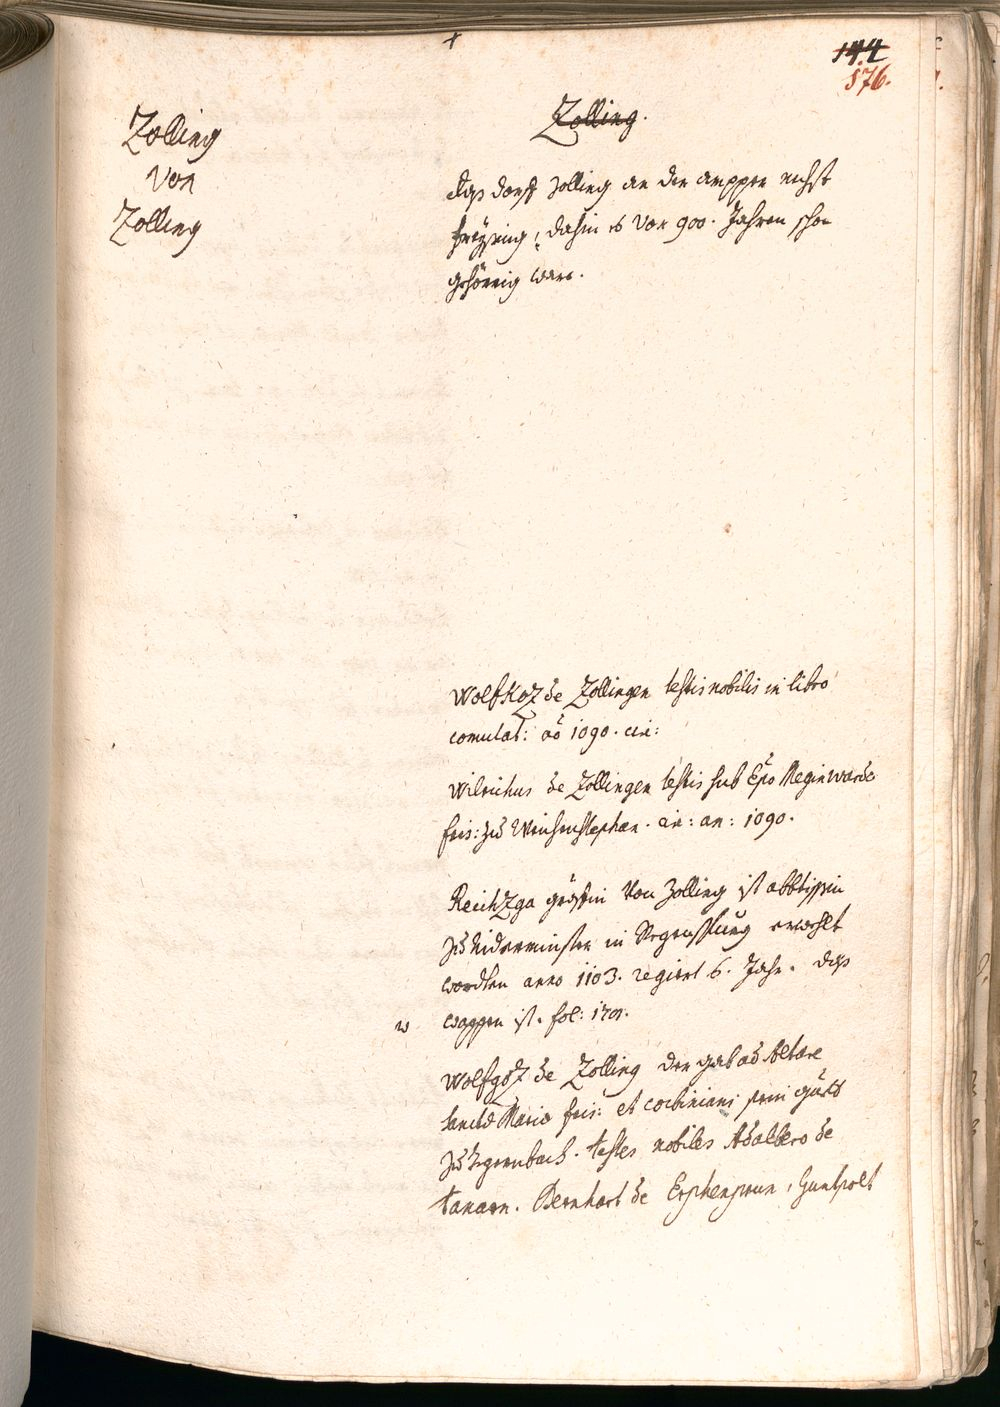 144
176.
Zolling
von
Zolling
Zolling.
das dorff Zolling an der ampper nechst
freysing, dahin es vor 900. Jahren schon
gehörrig ware.
Wolfkoz de Zollingen testis nobilis in libro
comutat: aõ 1090. cir:
Wilrichus de Zollingen testis sub Epõ Meginwardo
fris: zu Weichenstephan. cir: an: 1090.
Reichza gräffin von Zolling ist abbtissin
zu Nidermünster in Regenspurg erwehlt
wordten anno 1103. regiert 6. Jahr. das
wappen ist. fol:
Wolfgoz de Zolling der gab ad Altare
sanctae Mariae fris: et corbiniani sein guett
zu testes nobiles Adalbero de
tanarn. Bernhart de